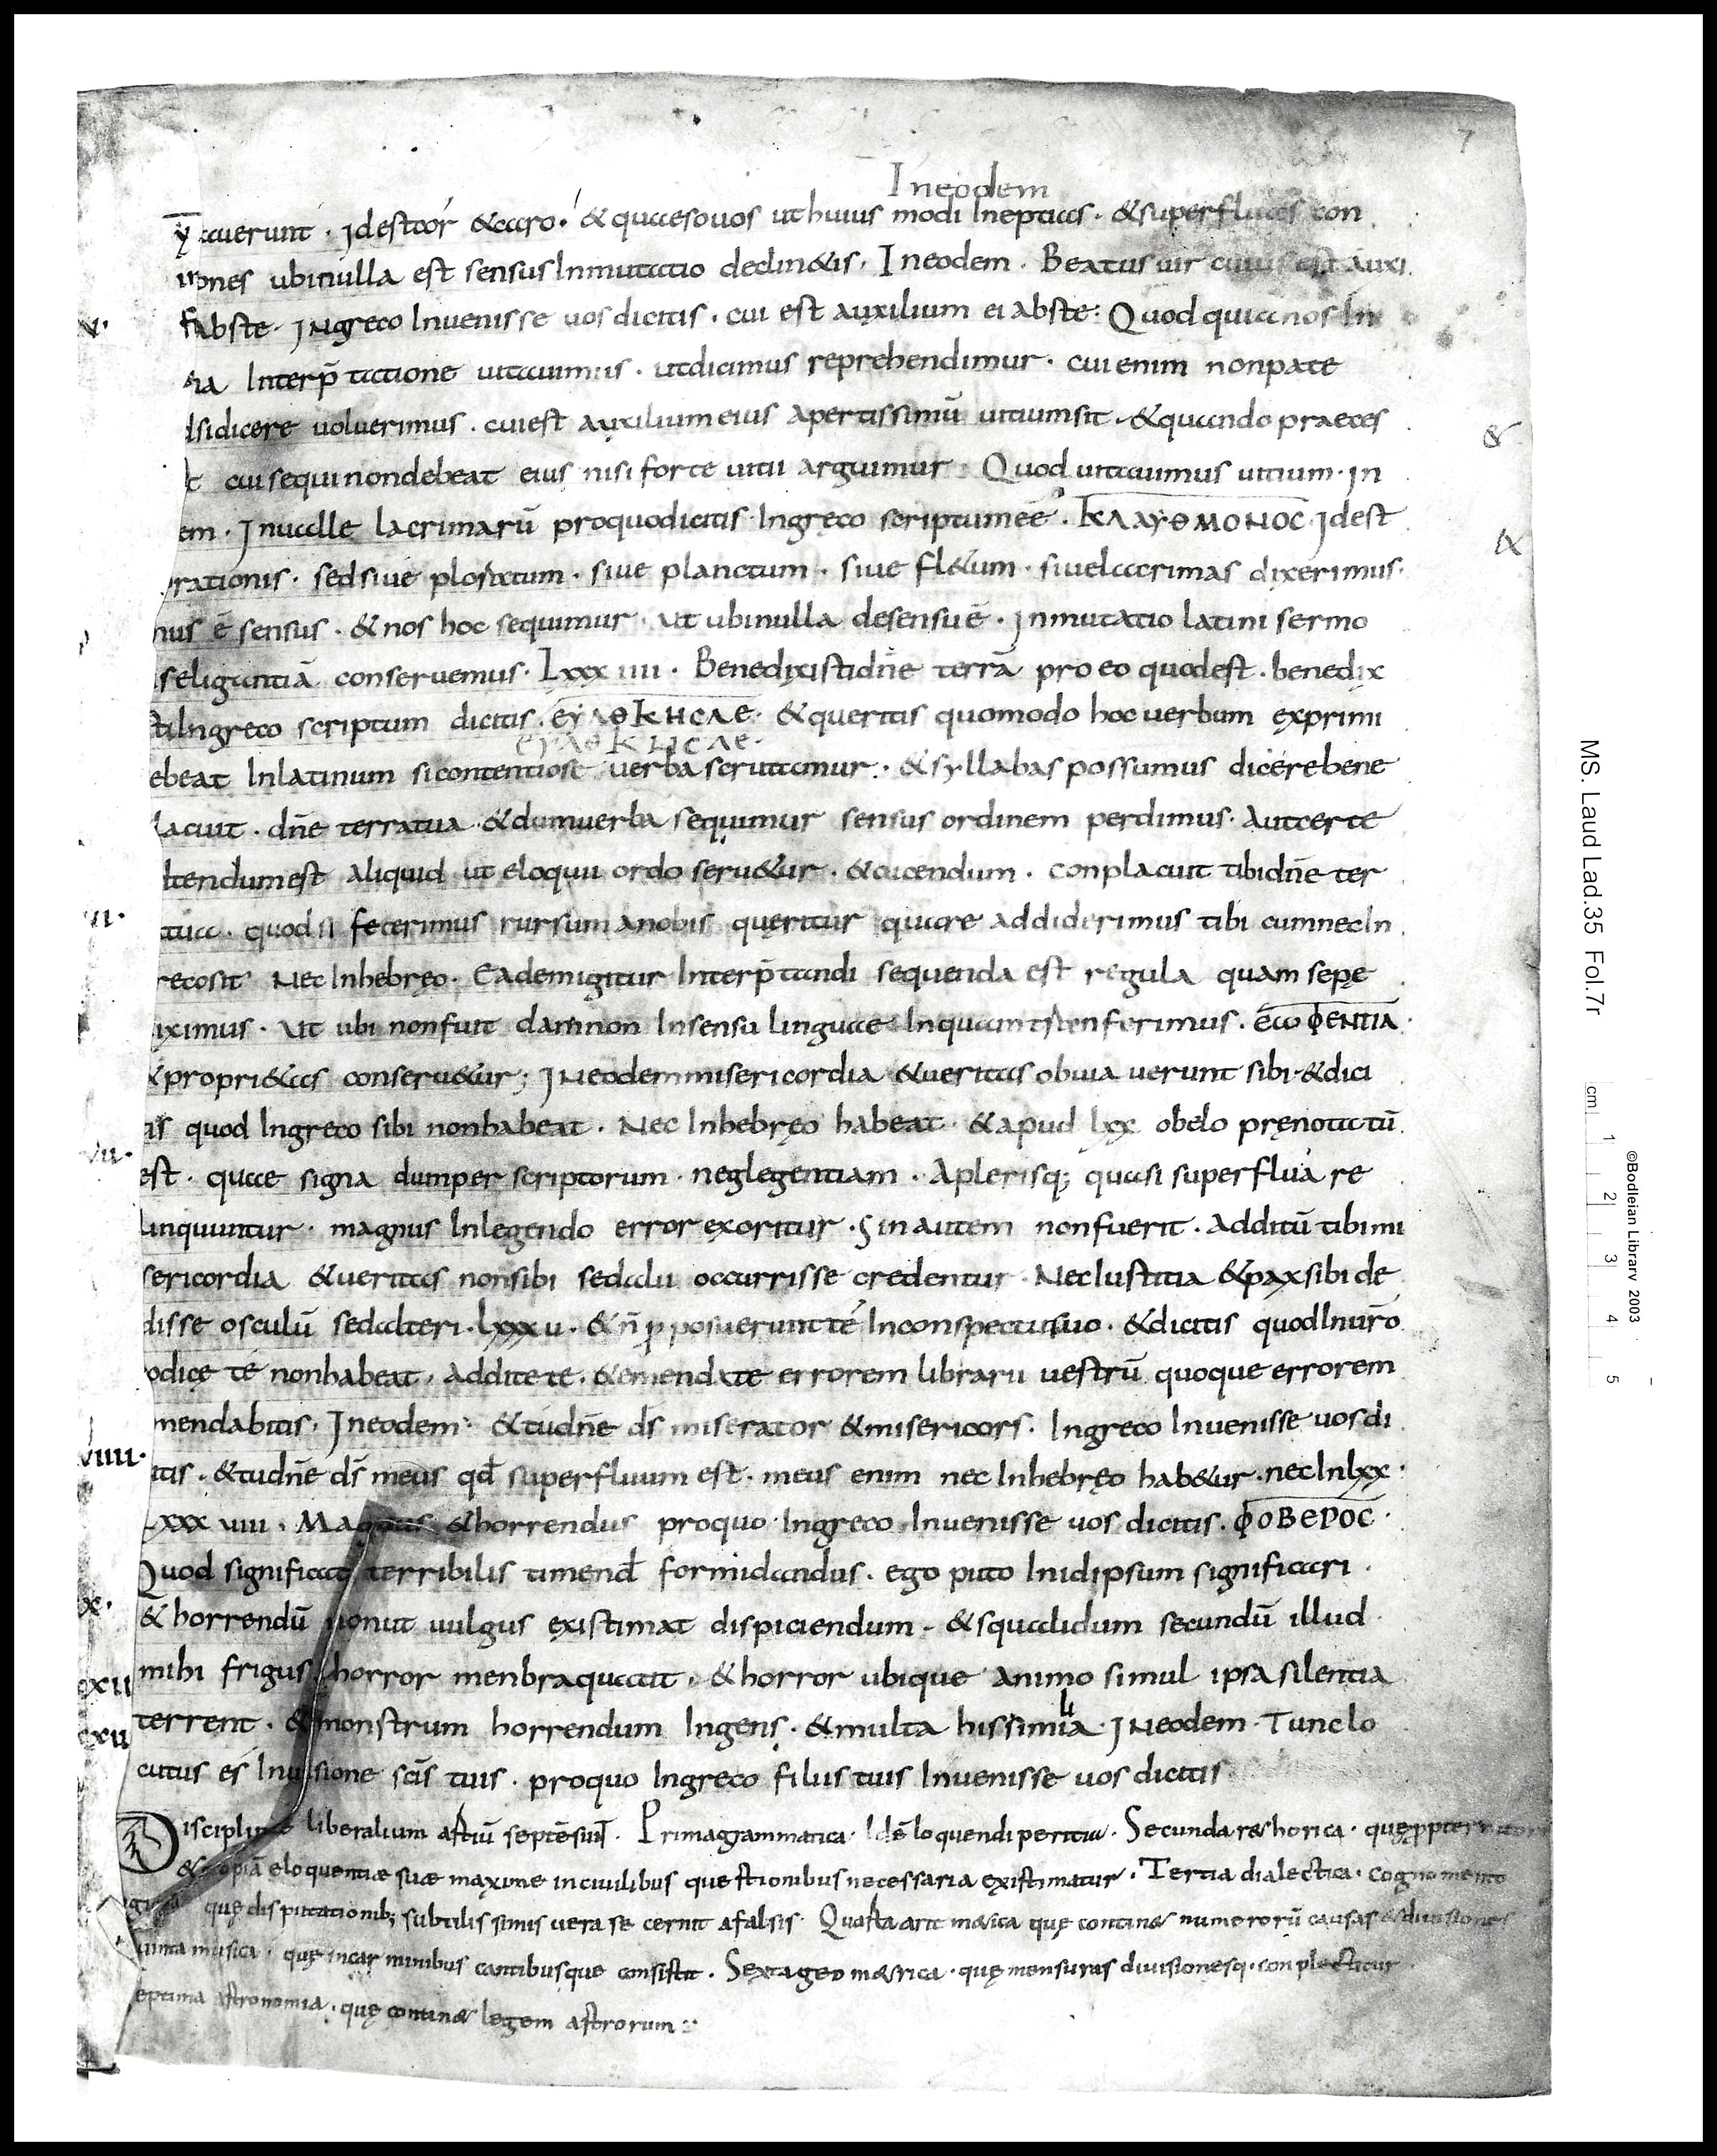 7
In eodem
tauerunt · Idest cor & caro · & quaeso uos ut huius modi ineptias · & superfluas con
iones ubi nulla est sensus inmutatio declinetis · In eodem · Beatus uir cuius est auxi
abste · In greco inuenisse uos dicitis · cui est auxilium ei abste : Quod quia nos in
interp̄tatione uitauimus · ut dicimus reprehendimur · cui enim non pate
si dicere uoluerimus · cui est auxilium eius apertissimū uitium sit · & quando praeces
cui sequi non debeat eius nisi forte uitii arguimur · Quod uitauimus uitium · In
em · In ualle lacrimarū pro quo dicitis in gręco scriptum eē · ΚΛΑΥΘΜΟΝΟC · Idest
rationis · sed siue ploratum · siue planctum · siue fl&um · siue lacrimas dixerimus ·
nus ē sensus · & nos hoc sequimur · ut ubi nulla de sensu ē · Inmutatio latini sermo
s eligantiā conseruemus · Lxxxiiii · Benedixisti dn̄e terrā pro eo quod est · benedix
sti in greco scriptum dicitis · ΕΥΛΘΚΗCΛΕ · & queritis quomodo hoc uerbum exprimi
ΕΥΛΘΚΗCΛΕ ·
ebeat in latinum si contentiose uerba scrutamur · & syllabas possumus dicere bene
lacuit · dn̄e terra tua · & dum uerba sequimur sensus ordinem perdimus · Aut certe
tendum est aliquid ut eloquii ordo seru&ur · & dicendum · conplacuit tibi dn̄e ter
tua · quod si fecerimus rursum a nobis quęritur quare addiderimus tibi cum nec in
reco sit Nec in hebręo · Eadem igitur interp̄tandi sequenda est regula quam sepę
iximus · ut ubi non fuit damnon in sensu linguae in quam transferimus · ΕΩΦΕΝΤΙΑ ·
& propri&as conseru&ur ; In eodem misericordia & ueritas obuia uerunt sibi · & dici
tis quod in greco sibi non habeat · Nec in hebręo habeat · & apud lxx obelo pręnotatū
est · quae signa dum per scriptorum · neglegentiam · A plerisq; quasi superflua re
linquuntur · magnus in legendo error exoritur · Sin autem non fuerit · Additū tibi mi
sericordia & ueritas non sibi sed alii occurrisse credentur · Nec iustitia & pax sibi de
disse osculū sed alteri · Lxxxu · & n̄ pposuerunt te in conspectu suo · & dicitis quod in ur̄o
odice te non habeat · Addite te · & emendate errorem librarii uestrū quoque errorem
mendabitis · In eodem · & tu dn̄e ds̄ miserator & misericors · In greco inuenisse uos di
itis · & tu dn̄e ds̄ meus qd̄ superfluum est · meus enim nec in hebręo hab&ur · nec in lxx ·
Lxxxuiii · Magnus & horrendus pro quo in greco inuenisse uos dicitis · ΦΟΒΕΡΟC ·
Quod significat terribilis timend̄ formidandus · ego puto in id ipsum significari ·
& horrendū non ut uulgus existimat dispiciendum · & squalidum secundū illud ·
mihi frigus horror menbra quatit · & horror ubique animo simul ipsa silentia
terrent · & monstrum horrendum ingens · & multa hissimilia · In eodem · Tunc lo
cutus es in uisione scīs tuis · pro quo in greco filiis tuis inuenisse uos dicitis
Discipline liberalium artiū septē sunt · Prima grammatica · Id ē loquendi peritia · Secunda r&horica · quę ppter
& copiā eloquentiæ suæ maxime in ciuilibus questionibus necessaria existimatur · Tertia dialectica · cognomento
quę disputationib; subtilissimis uera secernit a falsis · Quarta aritm&ica quę contin& numerorū causas & diuisiones
uinta musica · quę in carminibus cantibusque consistit · Sexta geom&rica · quę mensuras diuisionesq· conplectitur ·
eptima astronomia · quę contin& legem astrorum :
ui·
uii·
uiiii·
x·
xii
xii
&
&
MS. Laud Lad.35 Fol.7r
cm 1 2 3 4 5
©Bodleian Library 2003